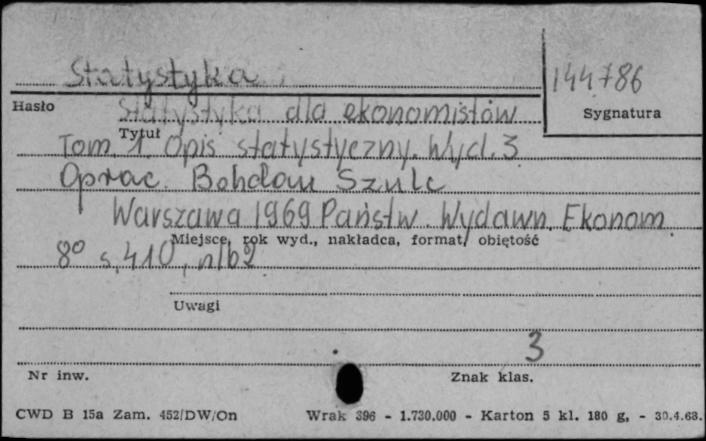 Statystyka
144786
Hasło
Sygnatura
Statystyka dla ekonomistów
Tytuł
Tom 1. Opis statystyczny. Wyd. 3
Oprac. Bohdan Szulc
Warszawa 1969 Państw. Wydawn. Ekonom.
Miejsce, rok wyd., nakładca, format, objętość
8° s. 410, nlb 2
Uwagi
3
Nr inw.
Znak klas.
CWD B 15a Zam. 452/DW/On Wrak 396 - 1.730.000 - Karton 5 kl. 180 g. - 30.4.68.